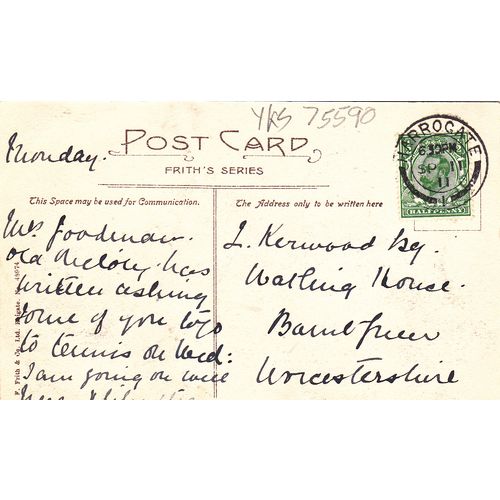 Yks 75590
POST CARD
FRITH'S SERIES
HARROGATE
6 30 PM
SP
11
11
HALFPENNY
Monday.
This Space may be used for Communication.
The Address only to be written here
Mrs Goodman
Old
has
written asking
some of you to go
to tennis on Wed:
I am going on
F. Frith & Co., Ltd. Reigate. No.
L. Kerwood Esq.
Watling House.
Barnt Green
Worcestershire